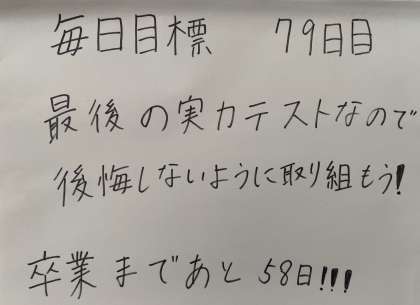 毎日目標　79日目
最後の実力テストなので
後悔しないように取り組もう!
卒業まであと58日!!!